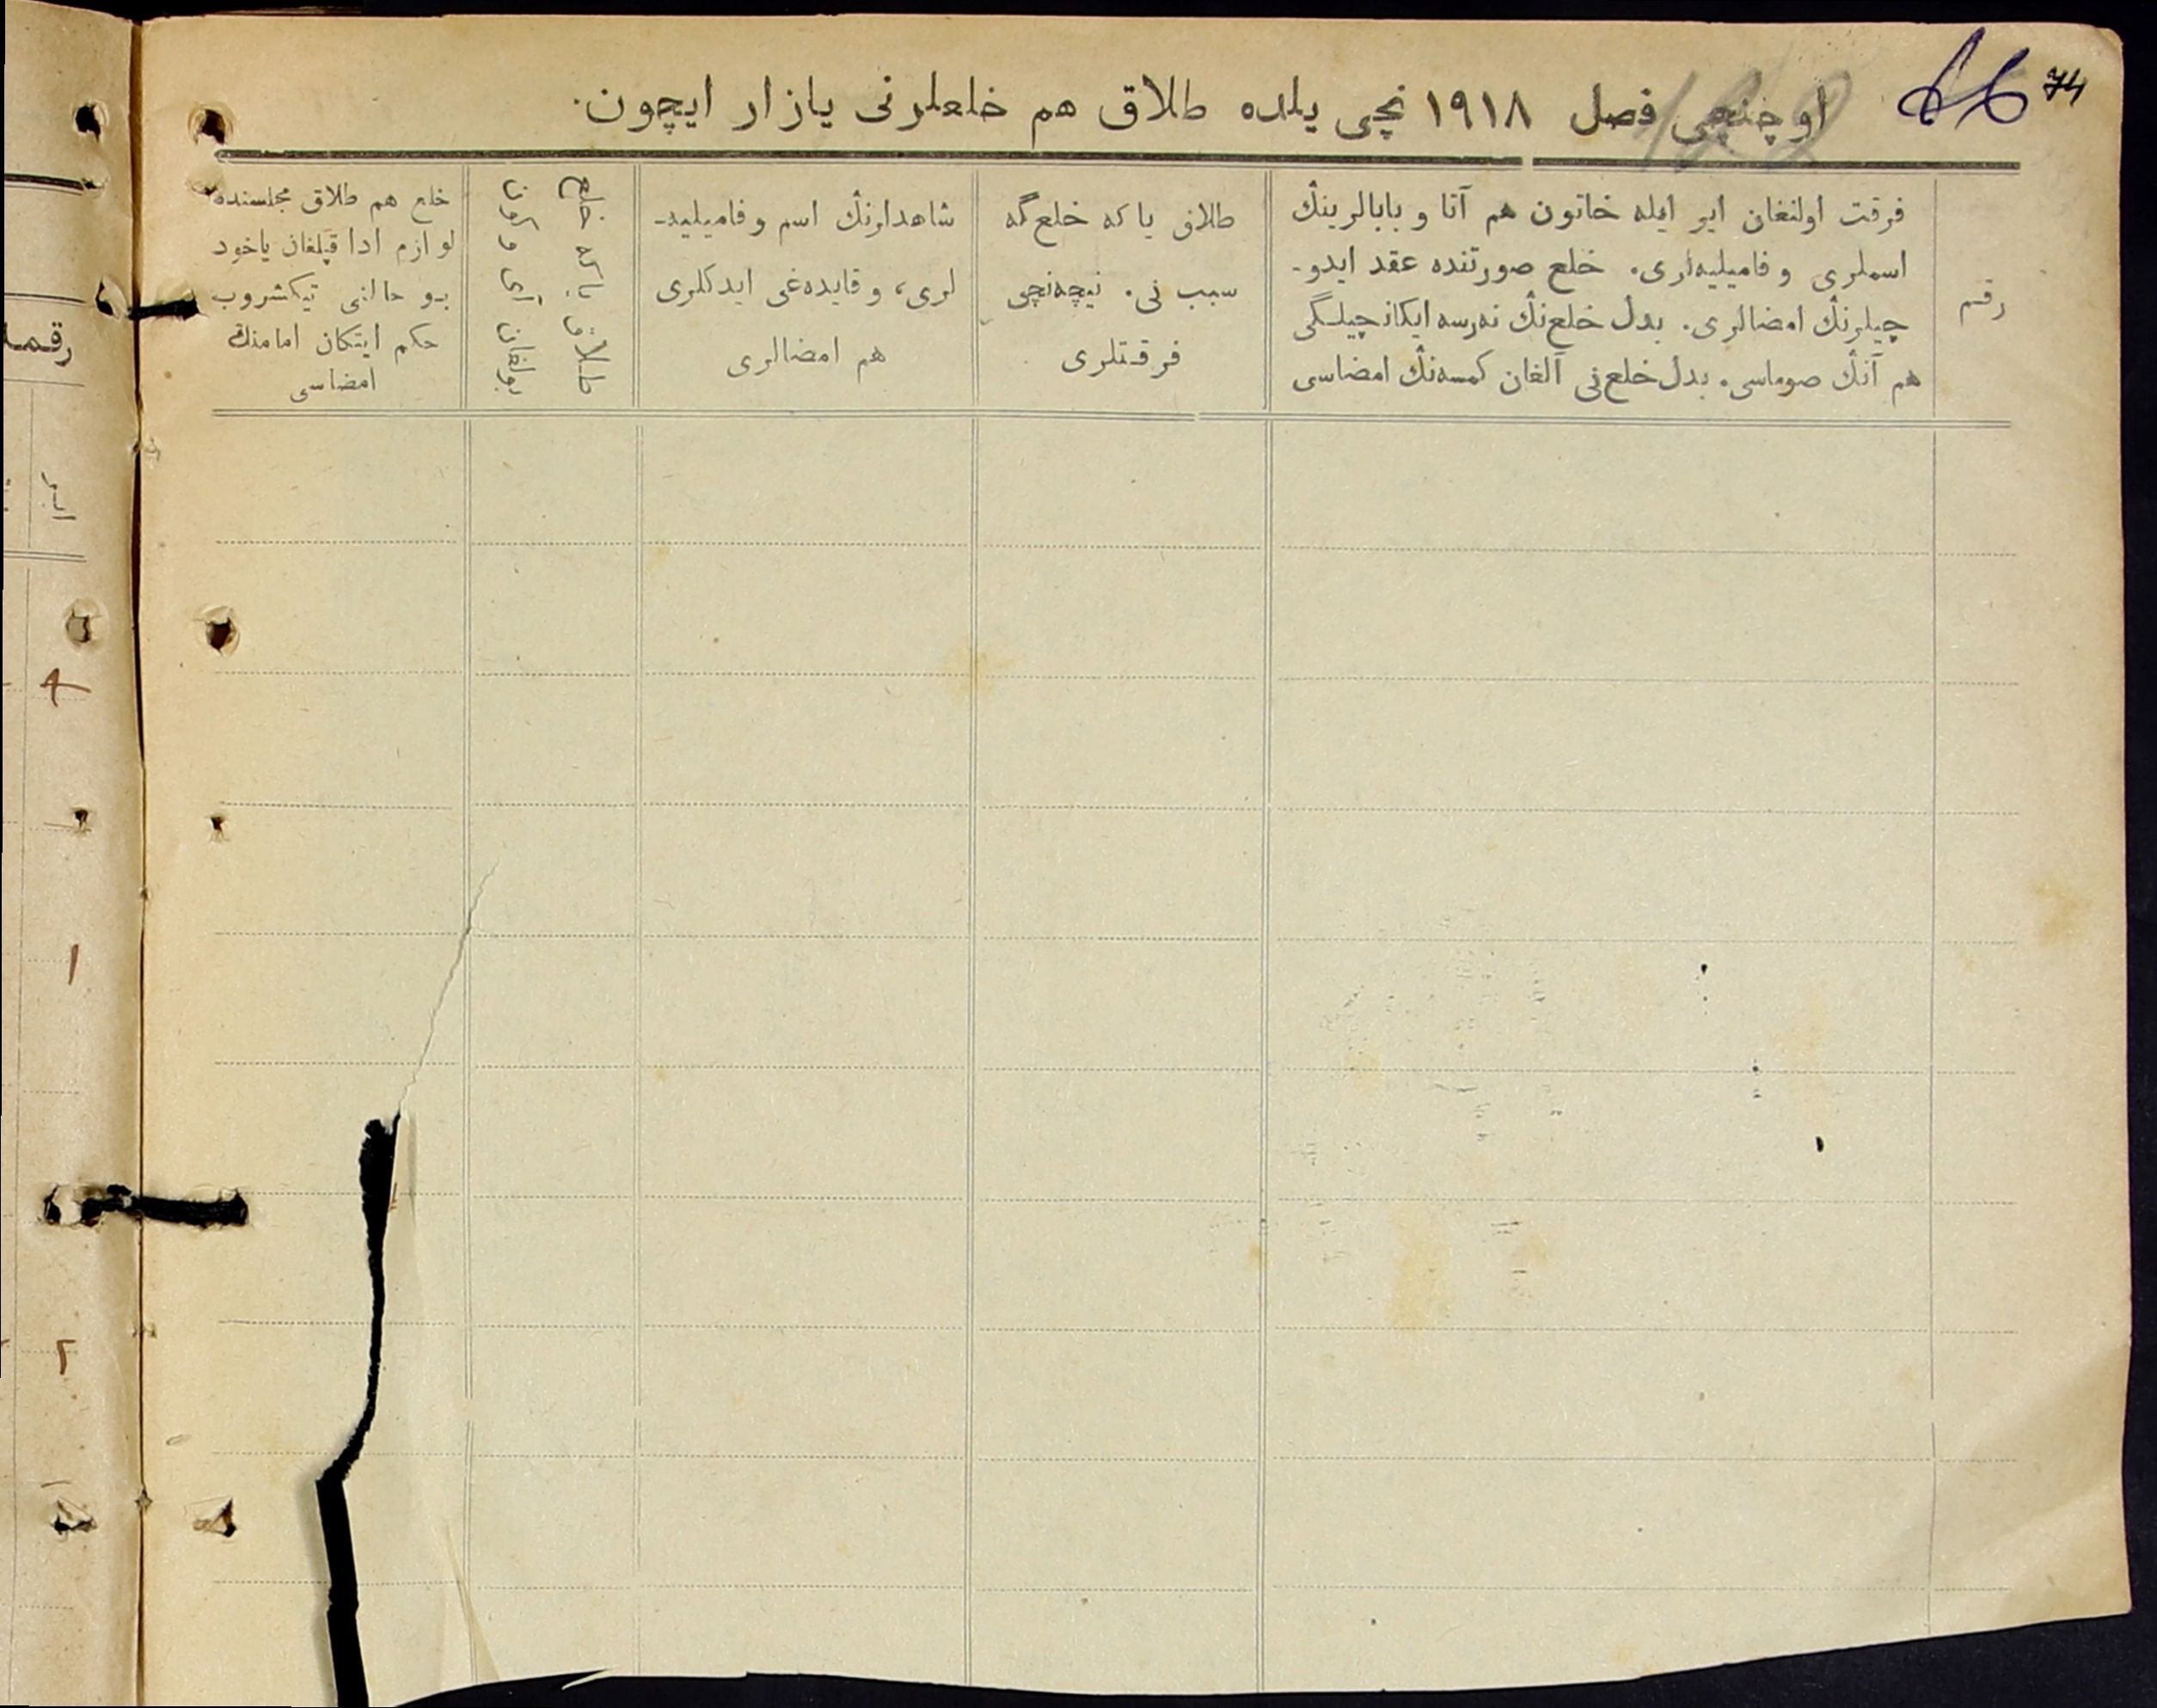 74
66
122
اوچنچی فصل ١٩١٨ نچی یلده طلاق هم خلعلرنی یازار ایچون.
رقم
فرقت اولنغان ایر ایله خاتون هم آتا و بابالرینڭ
اسملری و فامیلیه‌لری. خلع صورتنده عقد ایدو-
چیلرنڭ امضالری. بدل خلع‌نڭ نه‌رسه ایکانچیلگی
هم آنڭ صوماسی. بدل خلع‌نی آلغان کمسه‌نڭ امضاسی
طلاق یا که خلع گه
سبب نی. نیچه‌نچی
فرقتلری
شاهدلرنڭ اسم و فامیلیه-
لری، و قایده‌غی ایدکلری
هم امضالری
خلع یا که طلاق
بولغان آی و کون
خلع هم طلاق مجلسنده
لوازم ادا قیلغان یاخود
بو حالنی تیکشروب
حکم ایتکان امامنڭ
امضاسی
رقمـ
ایر
١
٢